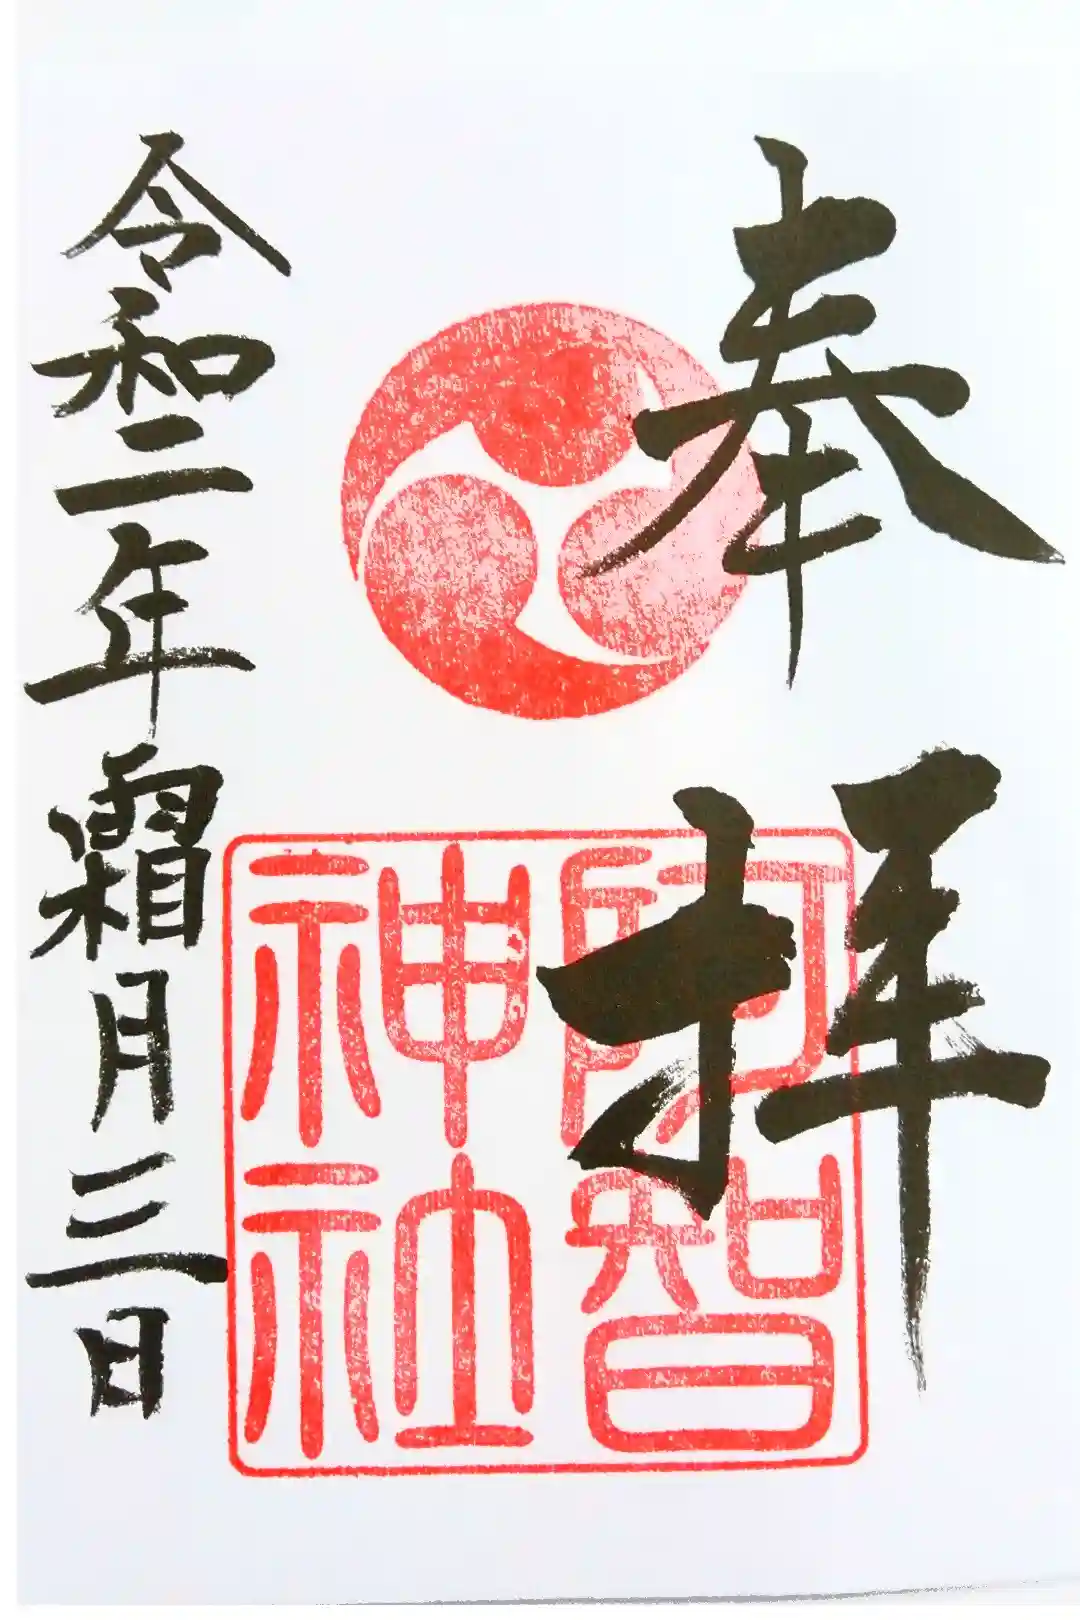 奉拝
阿智
神社
令和二年霜月三日